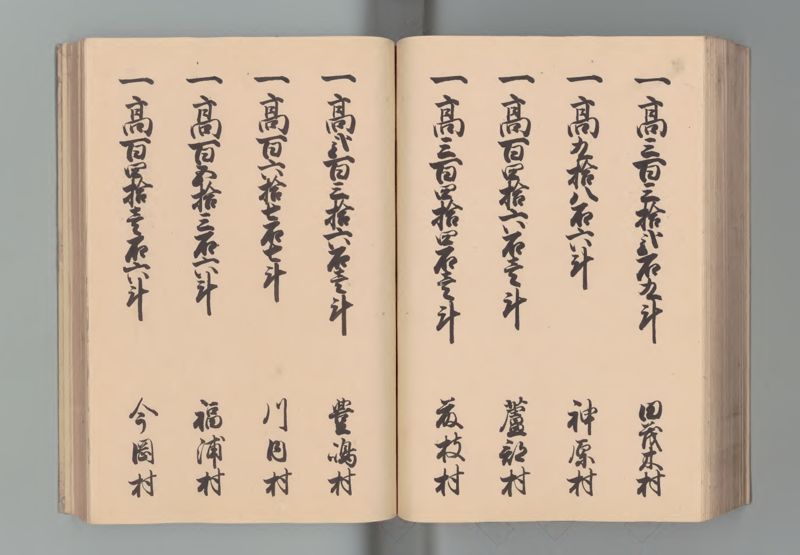 一高三百三拾弐石九斗 田茂木村
一高九拾八石六斗 神原村
一高百四拾六石壱斗 蘆部村
一高三百四拾四石壱斗 荻枝村
一高弐百三拾六石壱斗 豊嶋村
一高百六拾七石七斗 川内村
一高百五拾三石六斗 福浦村
一高百四拾壱石六斗 今岡村